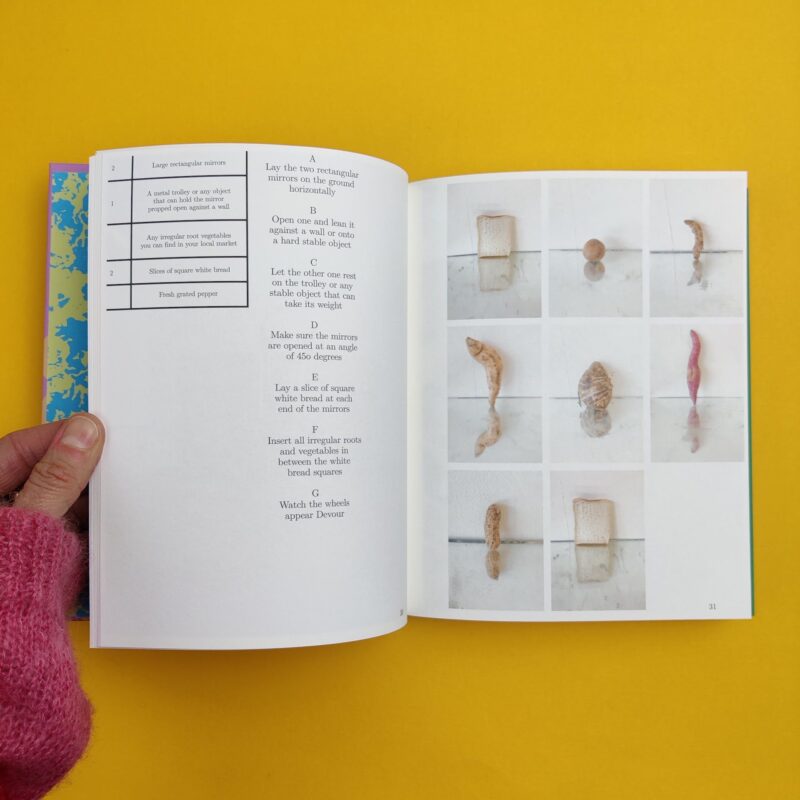 2 Large rectangular mirrors
1 A metal trolley or any object
that can hold the mirror
propped open against a wall
Any irregular root vegetables
you can find in your local market
2 Slices of square white bread
Fresh grated pepper
A
Lay the two rectangular
mirrors on the ground
horizontally
B
Open one and lean it
against a wall or onto
a hard stable object
C
Let the other one rest
on the trolley or any
stable object that can
take its weight
D
Make sure the mirrors
are opened at an angle
of 45o degrees
E
Lay a slice of square
white bread at each
end of the mirrors
F
Insert all irregular roots
and vegetables in
between the white
bread squares
G
Watch the wheels
appear Devour
31